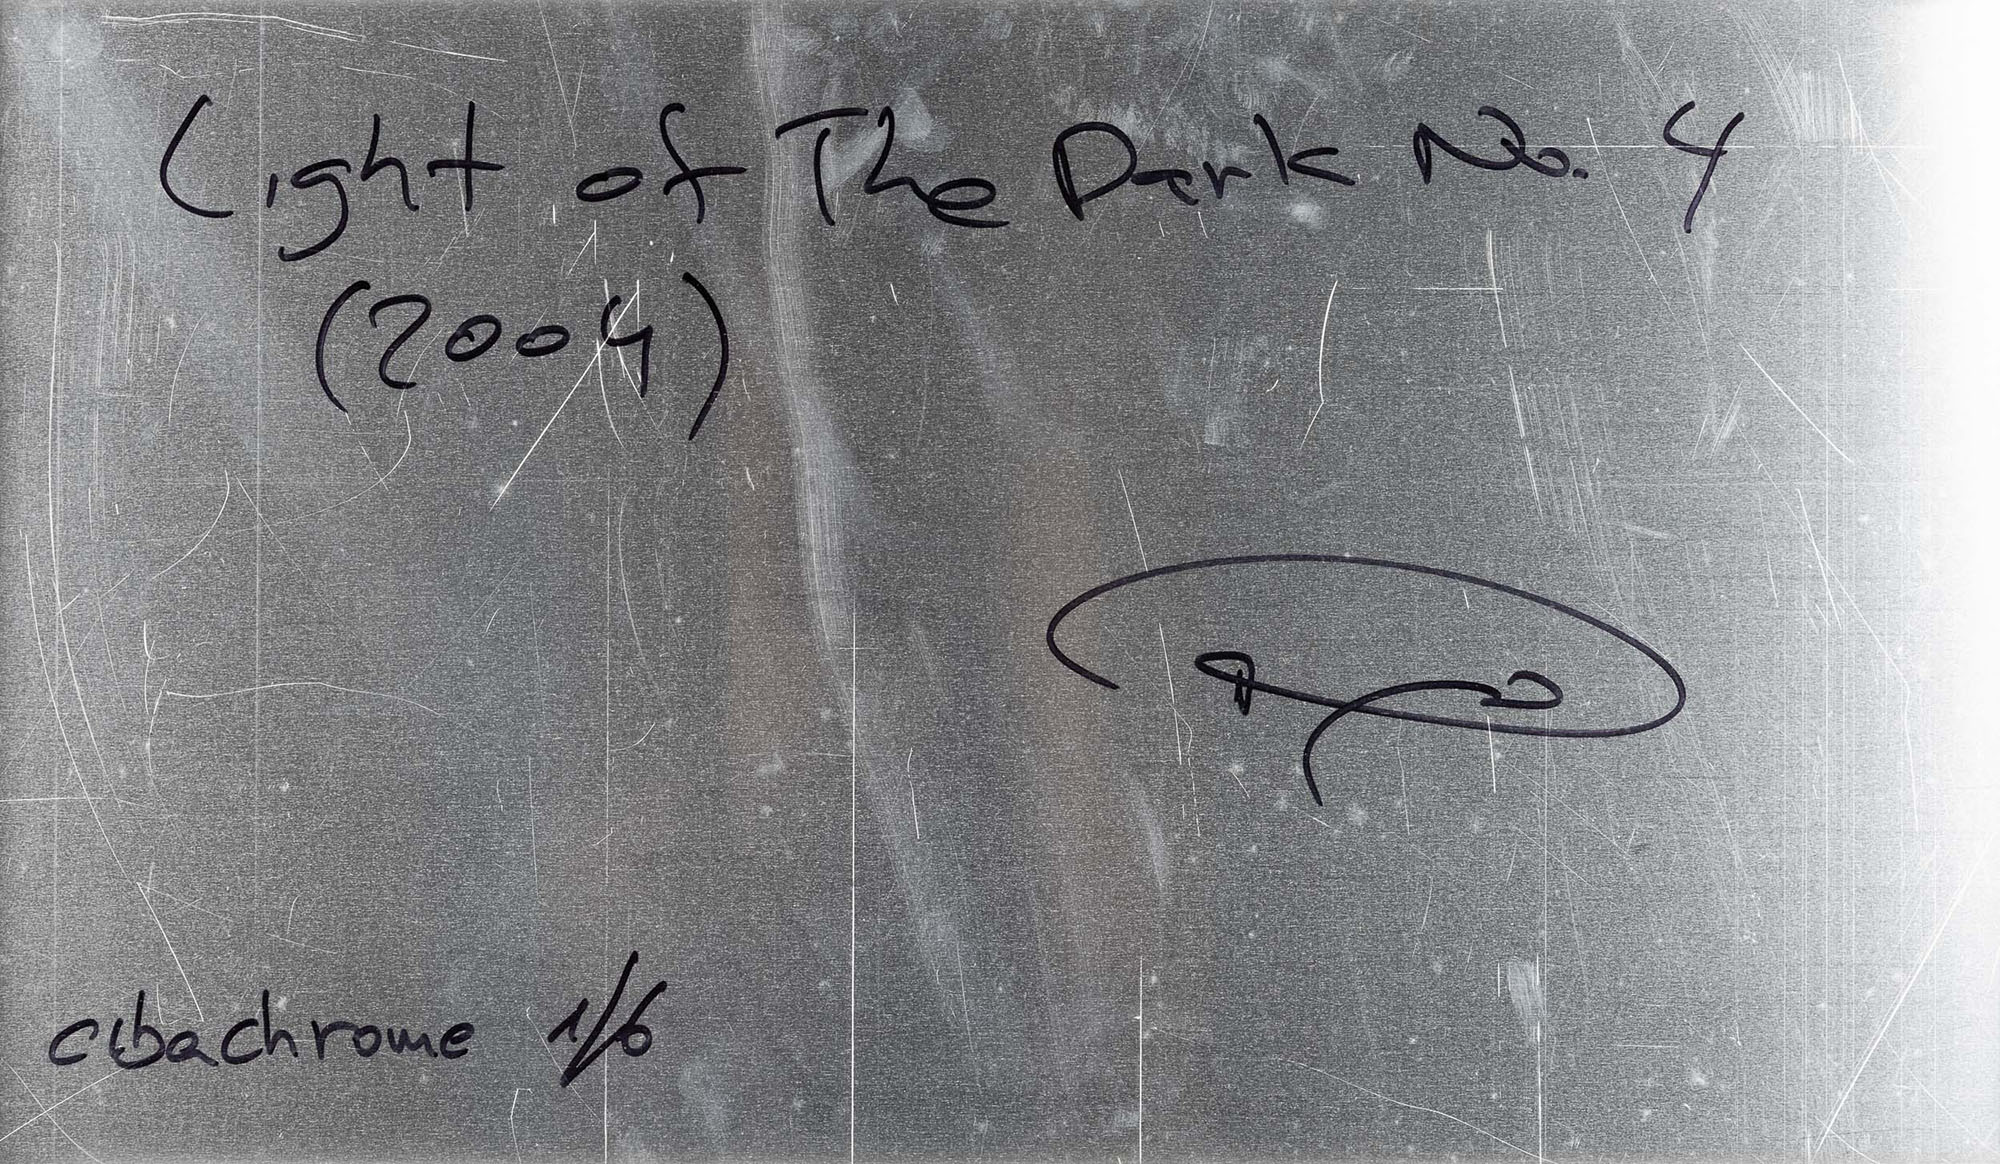 Light of The Dark No. 4
(2004)
cibachrome 1/6